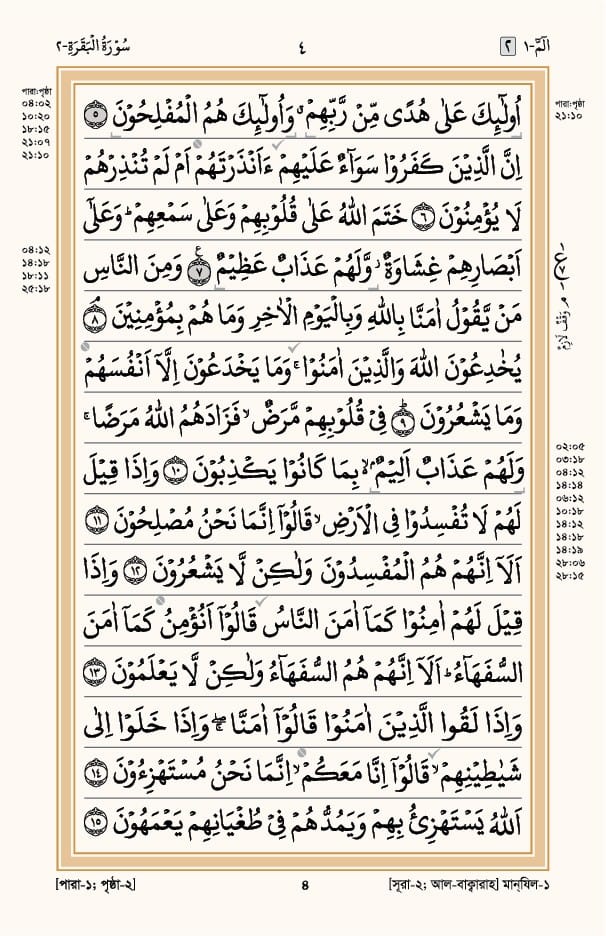 الٓمّٓ-١ ٢ ٤ سُوۡرَةُ الۡبَقَرَةِ-٢
اُولٰٓئِكَ عَلٰى هُدًى مِّنۡ رَّبِّهِمۡ ۙ وَاُولٰٓئِكَ هُمُ الۡمُفۡلِحُوۡنَ ٥
اِنَّ الَّذِيۡنَ كَفَرُوۡا سَوَآءٌ عَلَيۡهِمۡ ءَاَنۡذَرۡتَهُمۡ اَمۡ لَمۡ تُنۡذِرۡهُمۡ
لَا يُؤۡمِنُوۡنَ ٦ خَتَمَ اللهُ عَلٰى قُلُوۡبِهِمۡ وَعَلٰى سَمۡعِهِمۡ ؕ وَعَلٰٓى
اَبۡصَارِهِمۡ غِشَاوَةٌ ۙ وَّلَهُمۡ عَذَابٌ عَظِيۡمٌ ٧ ع وَمِنَ النَّاسِ
مَنۡ يَّقُوۡلُ اٰمَنَّا بِاللهِ وَبِالۡيَوۡمِ الۡاٰخِرِ وَمَا هُمۡ بِمُؤۡمِنِيۡنَ ۘ ٨
يُخٰدِعُوۡنَ اللهَ وَالَّذِيۡنَ اٰمَنُوۡا ۚ وَمَا يَخۡدَعُوۡنَ اِلَّاۤ اَنۡفُسَهُمۡ
وَمَا يَشۡعُرُوۡنَ ؕ ٩ فِىۡ قُلُوۡبِهِمۡ مَّرَضٌ ۙ فَزَادَهُمُ اللهُ مَرَضًا ۚ
وَلَهُمۡ عَذَابٌ اَلِيۡمٌ ۙ بِمَا كَانُوۡا يَكۡذِبُوۡنَ ١٠ وَاِذَا قِيۡلَ
لَهُمۡ لَا تُفۡسِدُوۡا فِى الۡاَرۡضِ ۙ قَالُوۡاۤ اِنَّمَا نَحۡنُ مُصۡلِحُوۡنَ ١١
اَلَاۤ اِنَّهُمۡ هُمُ الۡمُفۡسِدُوۡنَ وَلٰكِنۡ لَّا يَشۡعُرُوۡنَ ١٢ وَاِذَا
قِيۡلَ لَهُمۡ اٰمِنُوۡا كَمَاۤ اٰمَنَ النَّاسُ قَالُوۡاۤ اَنُؤۡمِنُ كَمَاۤ اٰمَنَ
السُّفَهَآءُ ؕ اَلَاۤ اِنَّهُمۡ هُمُ السُّفَهَآءُ وَلٰكِنۡ لَّا يَعۡلَمُوۡنَ ١٣
وَاِذَا لَقُوا الَّذِيۡنَ اٰمَنُوۡا قَالُوۡاۤ اٰمَنَّا ۖۚ وَاِذَا خَلَوۡا اِلٰى
شَيٰطِيۡنِهِمۡ ۙ قَالُوۡاۤ اِنَّا مَعَكُمۡ ۙ اِنَّمَا نَحۡنُ مُسۡتَهۡزِءُوۡنَ ١٤
اَللهُ يَسۡتَهۡزِئُ بِهِمۡ وَيَمُدُّهُمۡ فِىۡ طُغۡيَانِهِمۡ يَعۡمَهُوۡنَ ١٥
পারা:পৃষ্ঠা
২১:১০
ع
٧
م وَقۡفٌ لَازِمٌ
০২:০৫
০৩:১৮
০৪:১২
১৪:১৪
০৬:১২
১০:১৮
১৪:১২
১৪:১৮
১৪:১৯
২৮:০৬
২৮:১৫
পারা:পৃষ্ঠা
০৪:০২
১০:২০
১৮:১৫
২১:০৭
২১:১০
০৪:১২
১৪:১৮
১৮:১১
২৫:১৮
[পারা-১; পৃষ্ঠা-২] ৪ [সূরা-২; আল-বাক্বারাহ] মান্‌যিল-১